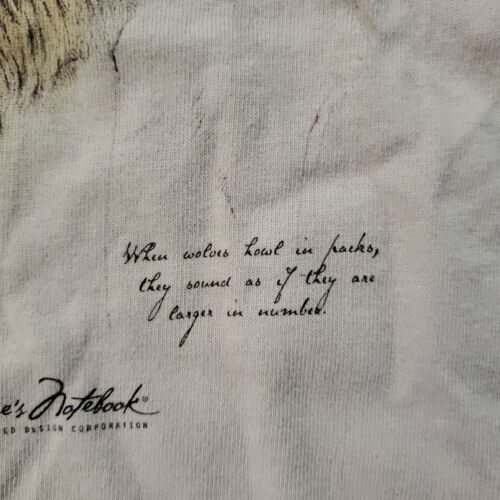 When wolves howl in packs,
they sound as if they are
larger in number.
e's Notebook®
ED DESIGN CORPORATION